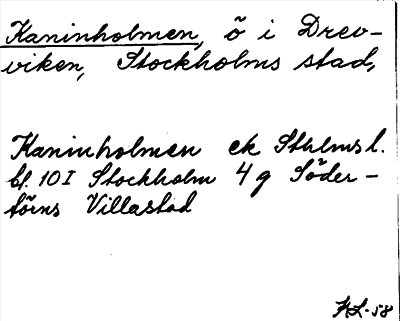 Kaninholmen, ö i Drev-
viken, Stockholms stad,
Kaninholmen ek Sthlms l.
bl. 10 I Stockholm 4 g Söder-
törns Villastad
KL-58